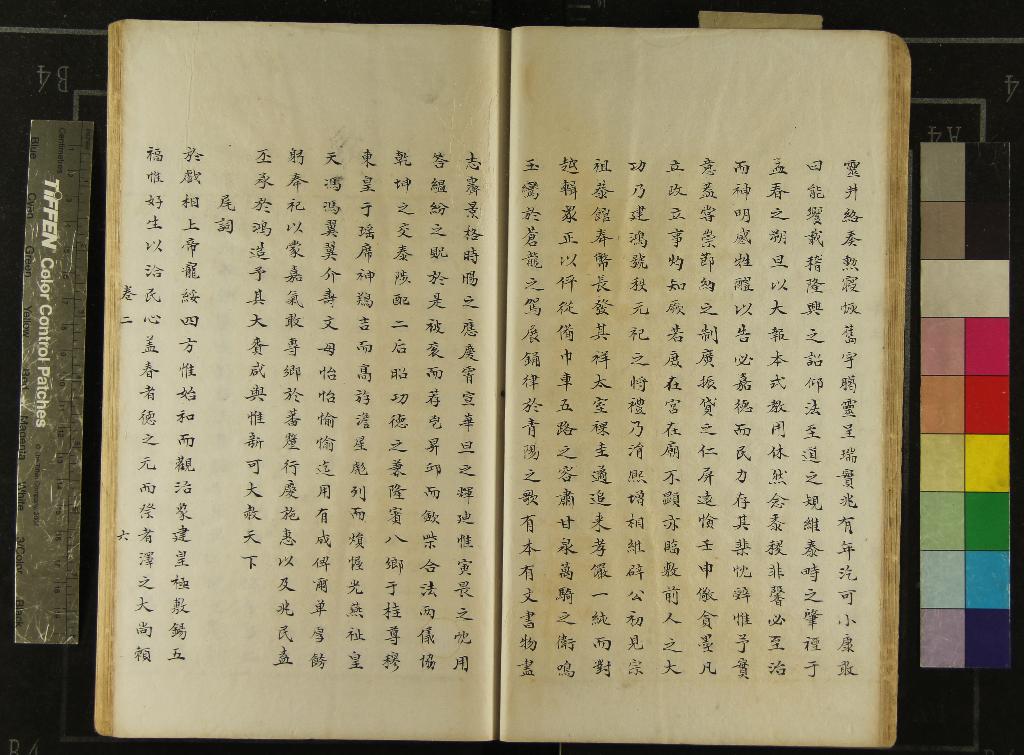 靈井絡奏勲寢恢舊宇賜靈呈瑞實兆有年汔可小康敢
曰能饗載稽隆興之詔仰法至道之規維泰時之肇禋于
孟春之朔旦以大報本式敎用休然念黍稷非馨必至治
而神明感牲醴以告必嘉德而民力存其棐忱辭惟予實
意益嘗崇節約之制廣振貸之仁屏遠憸壬申儆貪墨凡
立政立事灼知厥若度在宮在廟不顯亦臨敷前人之大
功乃建鴻號秩元祀之將禮乃消熙增相維辟公初見宗
祖恭館奉幣長發其祥太室祼圭遹追来孝儼一統而對
越輯衆正以侔從備巾車五路之容肅甘泉萬騎之衛鳴
玉鸞於蒼龍之駕展鏞律於青陽之歌有本有文書物盡
志齋景格時賜之應慶霄宣華旦之輝廸惟寅畏之忱用
答緼紛之貺於是被衮而荐皀昇邱而歛柴合法兩儀協
乾坤之交泰陟配二后昭功德之兼隆賓八鄉于桂尊穆
東皇于瑶席神鵶吉而髙詻澹星彪列而熉惺光燕祉皇
天馮馮翼翼介壽文母怡怡愉愉迄用有成俾爾單厚餙
躬奉祀以蒙嘉氣敢專鄉於蕃釐行慶施惠以及兆民盍
丕承於鴻造予其大賚咸與惟新可大赦天下
尾詞
於戲相上帝寵綏四方惟始和而觀治象建皇極敷錫五
福惟好生以洽民心盖春者德之元而癸者澤之大尚頼
卷二
六
B4
A4
Centimetres
TIFFEN Color Control Patches
Blue
Cyan
Green
Yellow
Red
Magenta
White
3/Color
Black